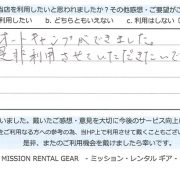 当店を利用したいと思われましたか?その他感想・ご要望がご
利用したい b. どちらともいえない c. 利用はしない(
オートキャンプができました。
是非利用させていただきたいで
いました。戴いたご感想・意見を大切に今後のサービス向上に
をご利用になる方への参考の為、当HP上で利用させて戴くこともござい
是非、またのご利用機会を戴けましたら幸いです。
MISSION RENTAL GEAR -ミッション・レンタル ギア-